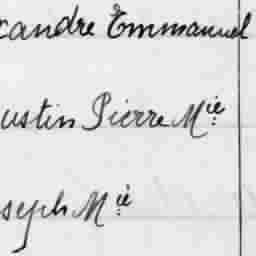 candre Emmanuel
ustin Pierre Mie
seph Mie